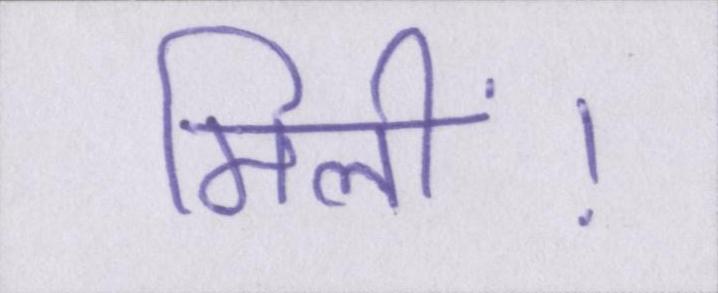 मिलीं!